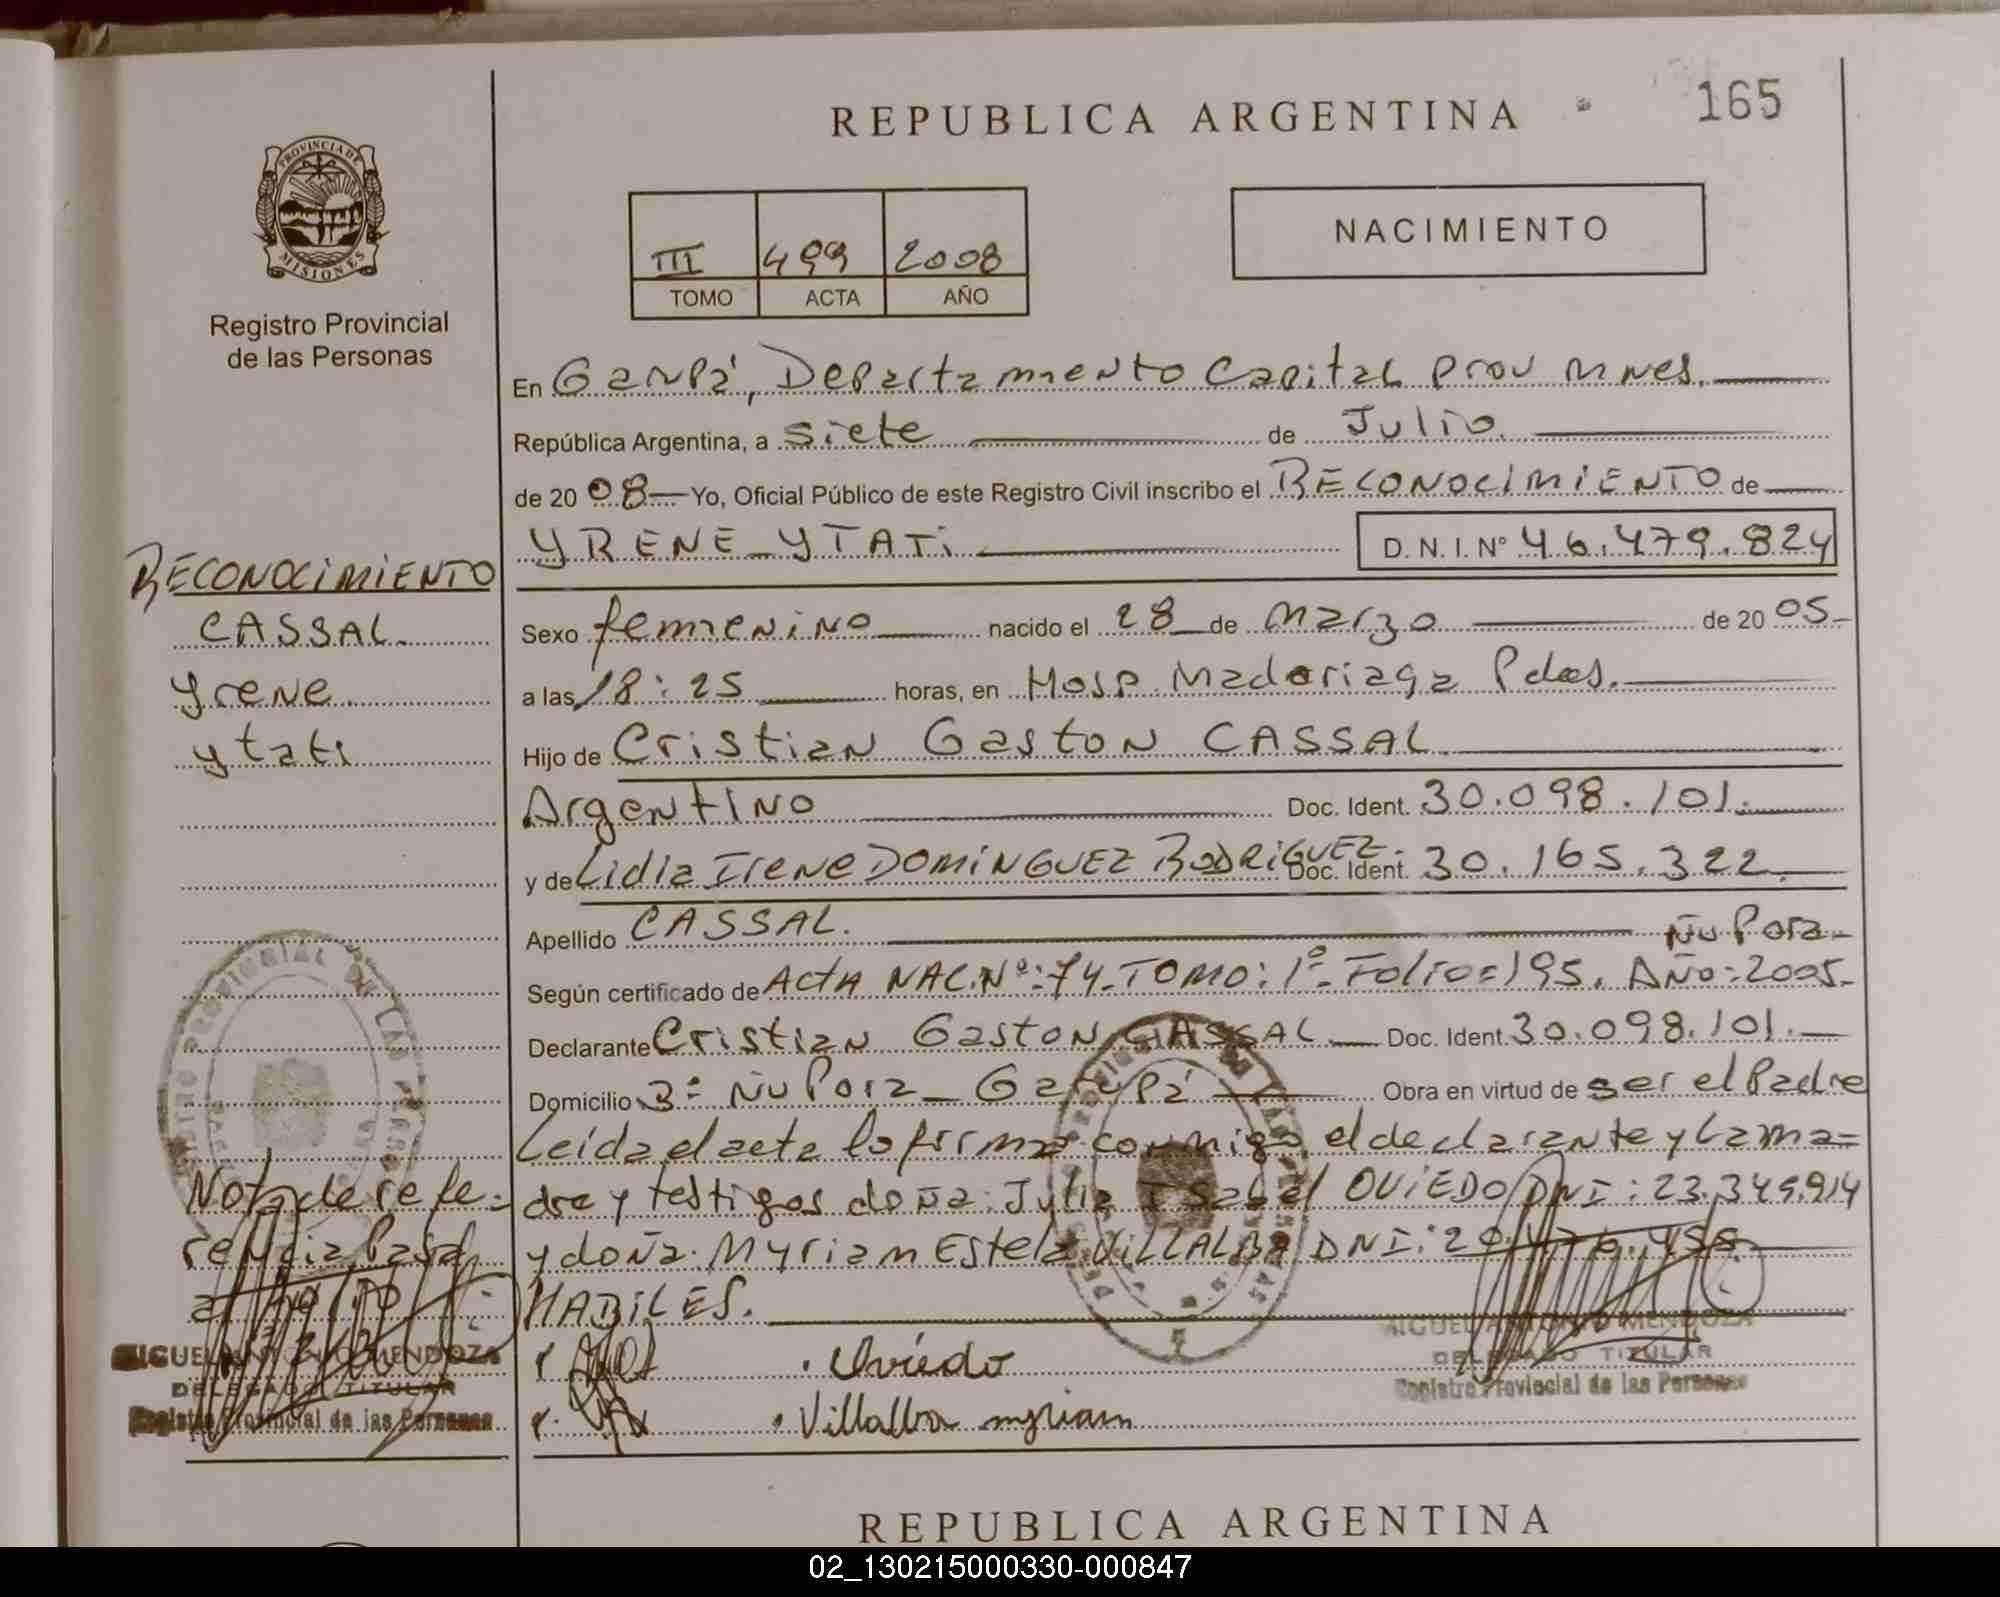 REPUBLICA ARGENTINA
165
PROVINCIA DE
MISIONES
Registro Provincial
de las Personas
III 499 2008
TOMO ACTA AÑO
NACIMIENTO
En Garupá, Departamento Capital Prov Mnes.
República Argentina, a siete de Julio.
de 2008 Yo, Oficial Público de este Registro Civil inscribo el RECONOCIMIENTO de
YRENE YTATi D. N. I. Nº 46.479.824
Sexo femenino nacido el 28 de Marzo de 2005
a las 18:25 horas, en Hosp. Madariaga Pdas.
Hijo de Cristian Gaston CASSAL
Argentino Doc. Ident. 30.098.101.
y de Lidia Irene DOMINGUEZ RODRIGUEZ. Doc. Ident. 30.165.322.
Apellido CASSAL. Ñu Pora
Según certificado de ActA NAC. Nº: 74 - TOMO: 1º - Folio = 195. AÑo: 2005.
Declarante Cristian Gaston CASSAL Doc. Ident. 30.098.101.
Domicilio Bº Ñu Pora - Garupá Obra en virtud de ser el Padre
Leída el acta la firma conmigo el declarante y la ma=
dre y testigos doña: Julia Isabel OVIEDO DNI: 23.349.914
y doña: Myriam Estela VILLALBA DNI:
HABILES.
Oviedo
Villalba myriam
MIGUEL ANTONIO MENDOZA
DELEGADO TITULAR
Registro Provincial de las Personas
RECONOCIMIENTO
CASSAL
Yrene
ytati
Nota de refe=
rencia Pasa
al
MIGUEL ANTONIO MENDOZA
DELEGADO TITULAR
Registro Provincial de las Personas
REPUBLICA ARGENTINA
02_130215000330-000847